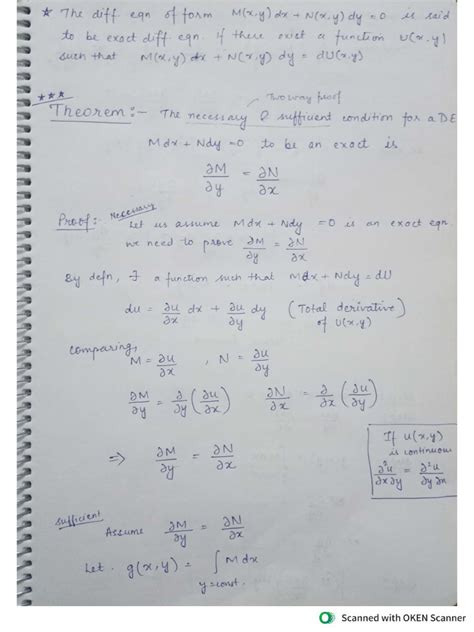 ★ The diff eqn of form M(x,y) dx + N(x,y) dy = 0 is said
to be exact diff. eqn. if there exist a function U(x,y)
such that M(x,y) dx + N(x,y) dy = dU(x,y)
★★★
Two way proof
Theorem :- The necessary & sufficient condition for a DE
Mdx + Ndy = 0 to be an exact is
∂M/∂y = ∂N/∂x
Proof :- Necessary
Let us assume Mdx + Ndy = 0 is an exact eqn.
we need to prove ∂M/∂y = ∂N/∂x
By defn, ∃ a function such that Mdx + Ndy = dU
du = ∂u/∂x dx + ∂u/∂y dy (Total derivative of U(x,y))
Comparing,
M = ∂u/∂x , N = ∂u/∂y
∂M/∂y = ∂/∂y (∂u/∂x) ∂N/∂x = ∂/∂x (∂u/∂y)
⇒ ∂M/∂y = ∂N/∂x
If u(x,y)
is continuous
∂²u/∂x∂y = ∂²u/∂y∂x
Sufficient
Assume ∂M/∂y = ∂N/∂x
Let g(x,y) = ∫ M dx
y = const.
Scanned with OKEN Scanner